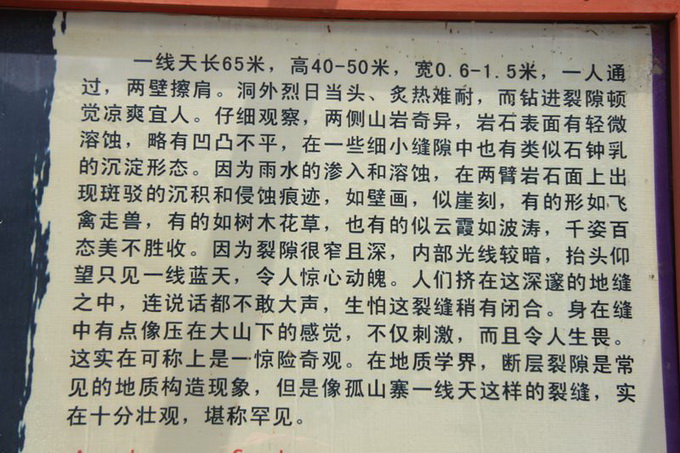 一线天长65米，高40-50米，宽0.6-1.5米，一人通
过，两壁擦肩。洞外烈日当头、炙热难耐，而钻进裂隙顿
觉凉爽宜人。仔细观察，两侧山岩奇异，岩石表面有轻微
溶蚀，略有凹凸不平，在一些细小缝隙中也有类似石钟乳
的沉淀形态。因为雨水的渗入和溶蚀，在两臂岩石面上出
现斑驳的沉积和侵蚀痕迹，如壁画，似崖刻，有的形如飞
禽走兽，有的如树木花草，也有的似云霞如波涛，千姿百
态美不胜收。因为裂隙很窄且深，内部光线较暗，抬头仰
望只见一线蓝天，令人惊心动魄。人们挤在这深邃的地缝
之中，连说话都不敢大声，生怕这裂缝稍有闭合。身在缝
中有点像压在大山下的感觉，不仅刺激，而且令人生畏。
这实在可称上是一惊险奇观。在地质学界，断层裂隙是常
见的地质构造现象，但是像孤山寨一线天这样的裂缝，实
在十分壮观，堪称罕见。